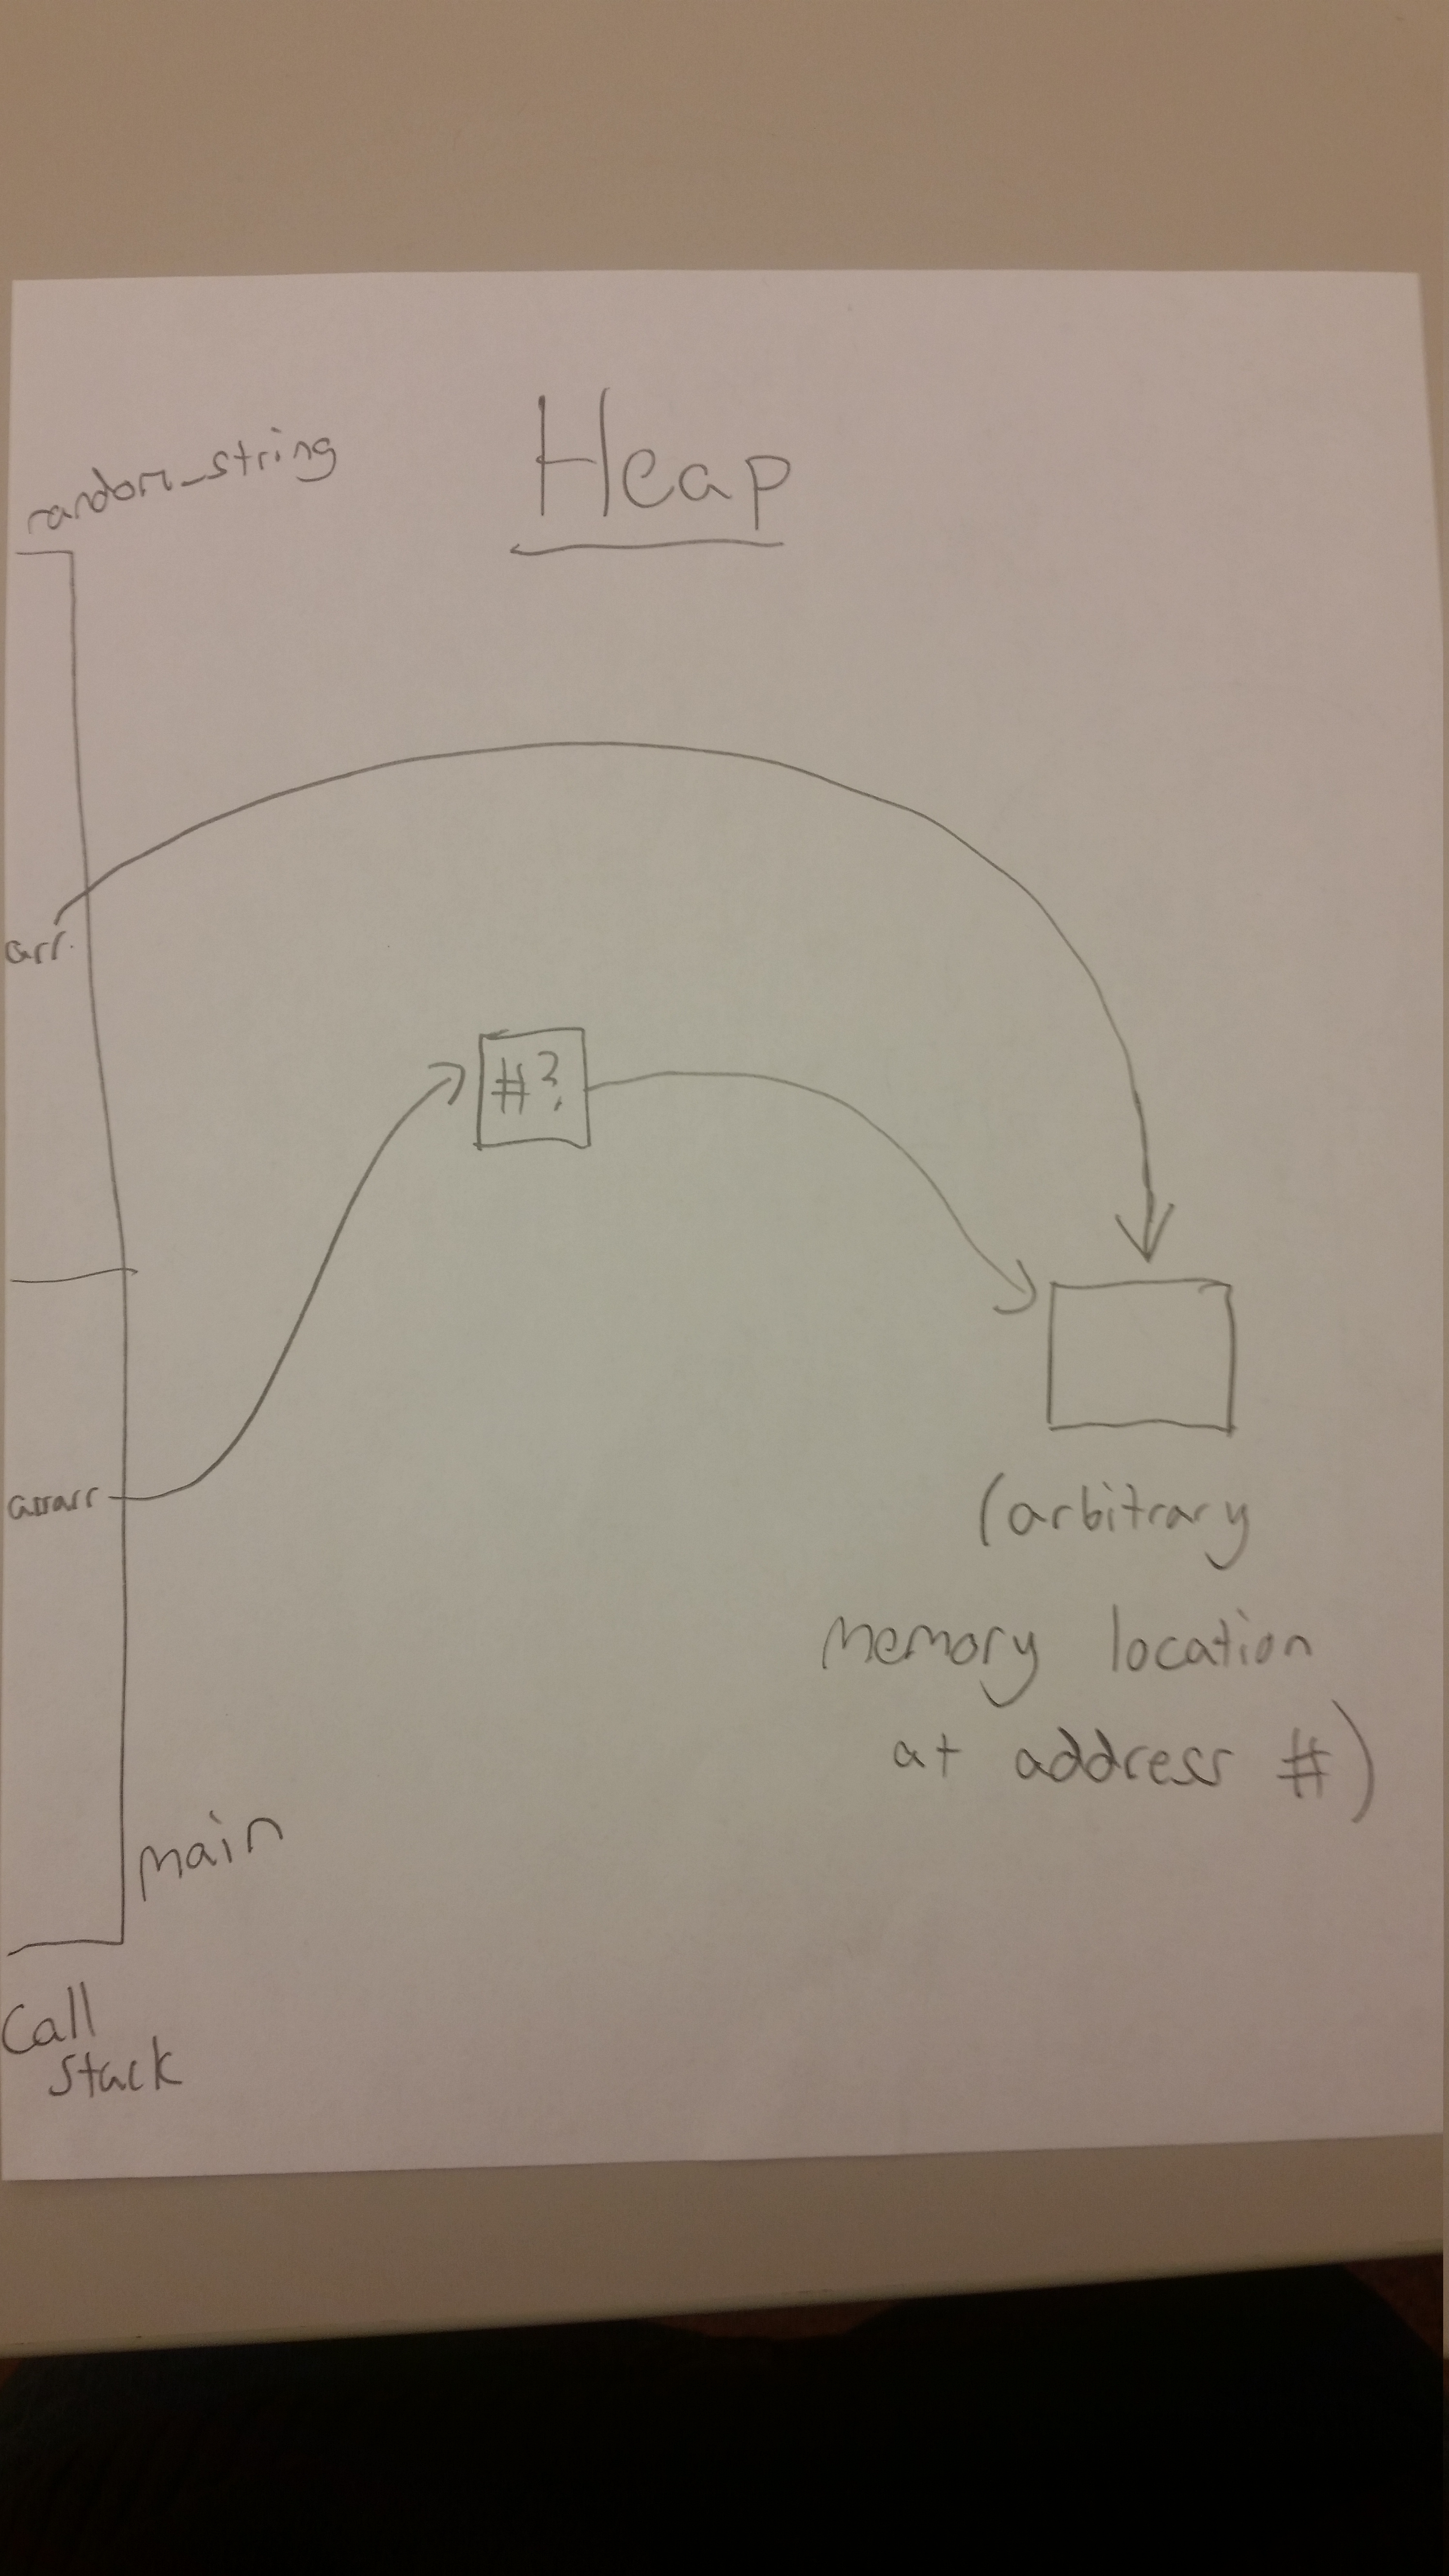 random_string
Heap
arr
#?
arrarr
(arbitrary
memory location
at address #)
main
Call
Stack